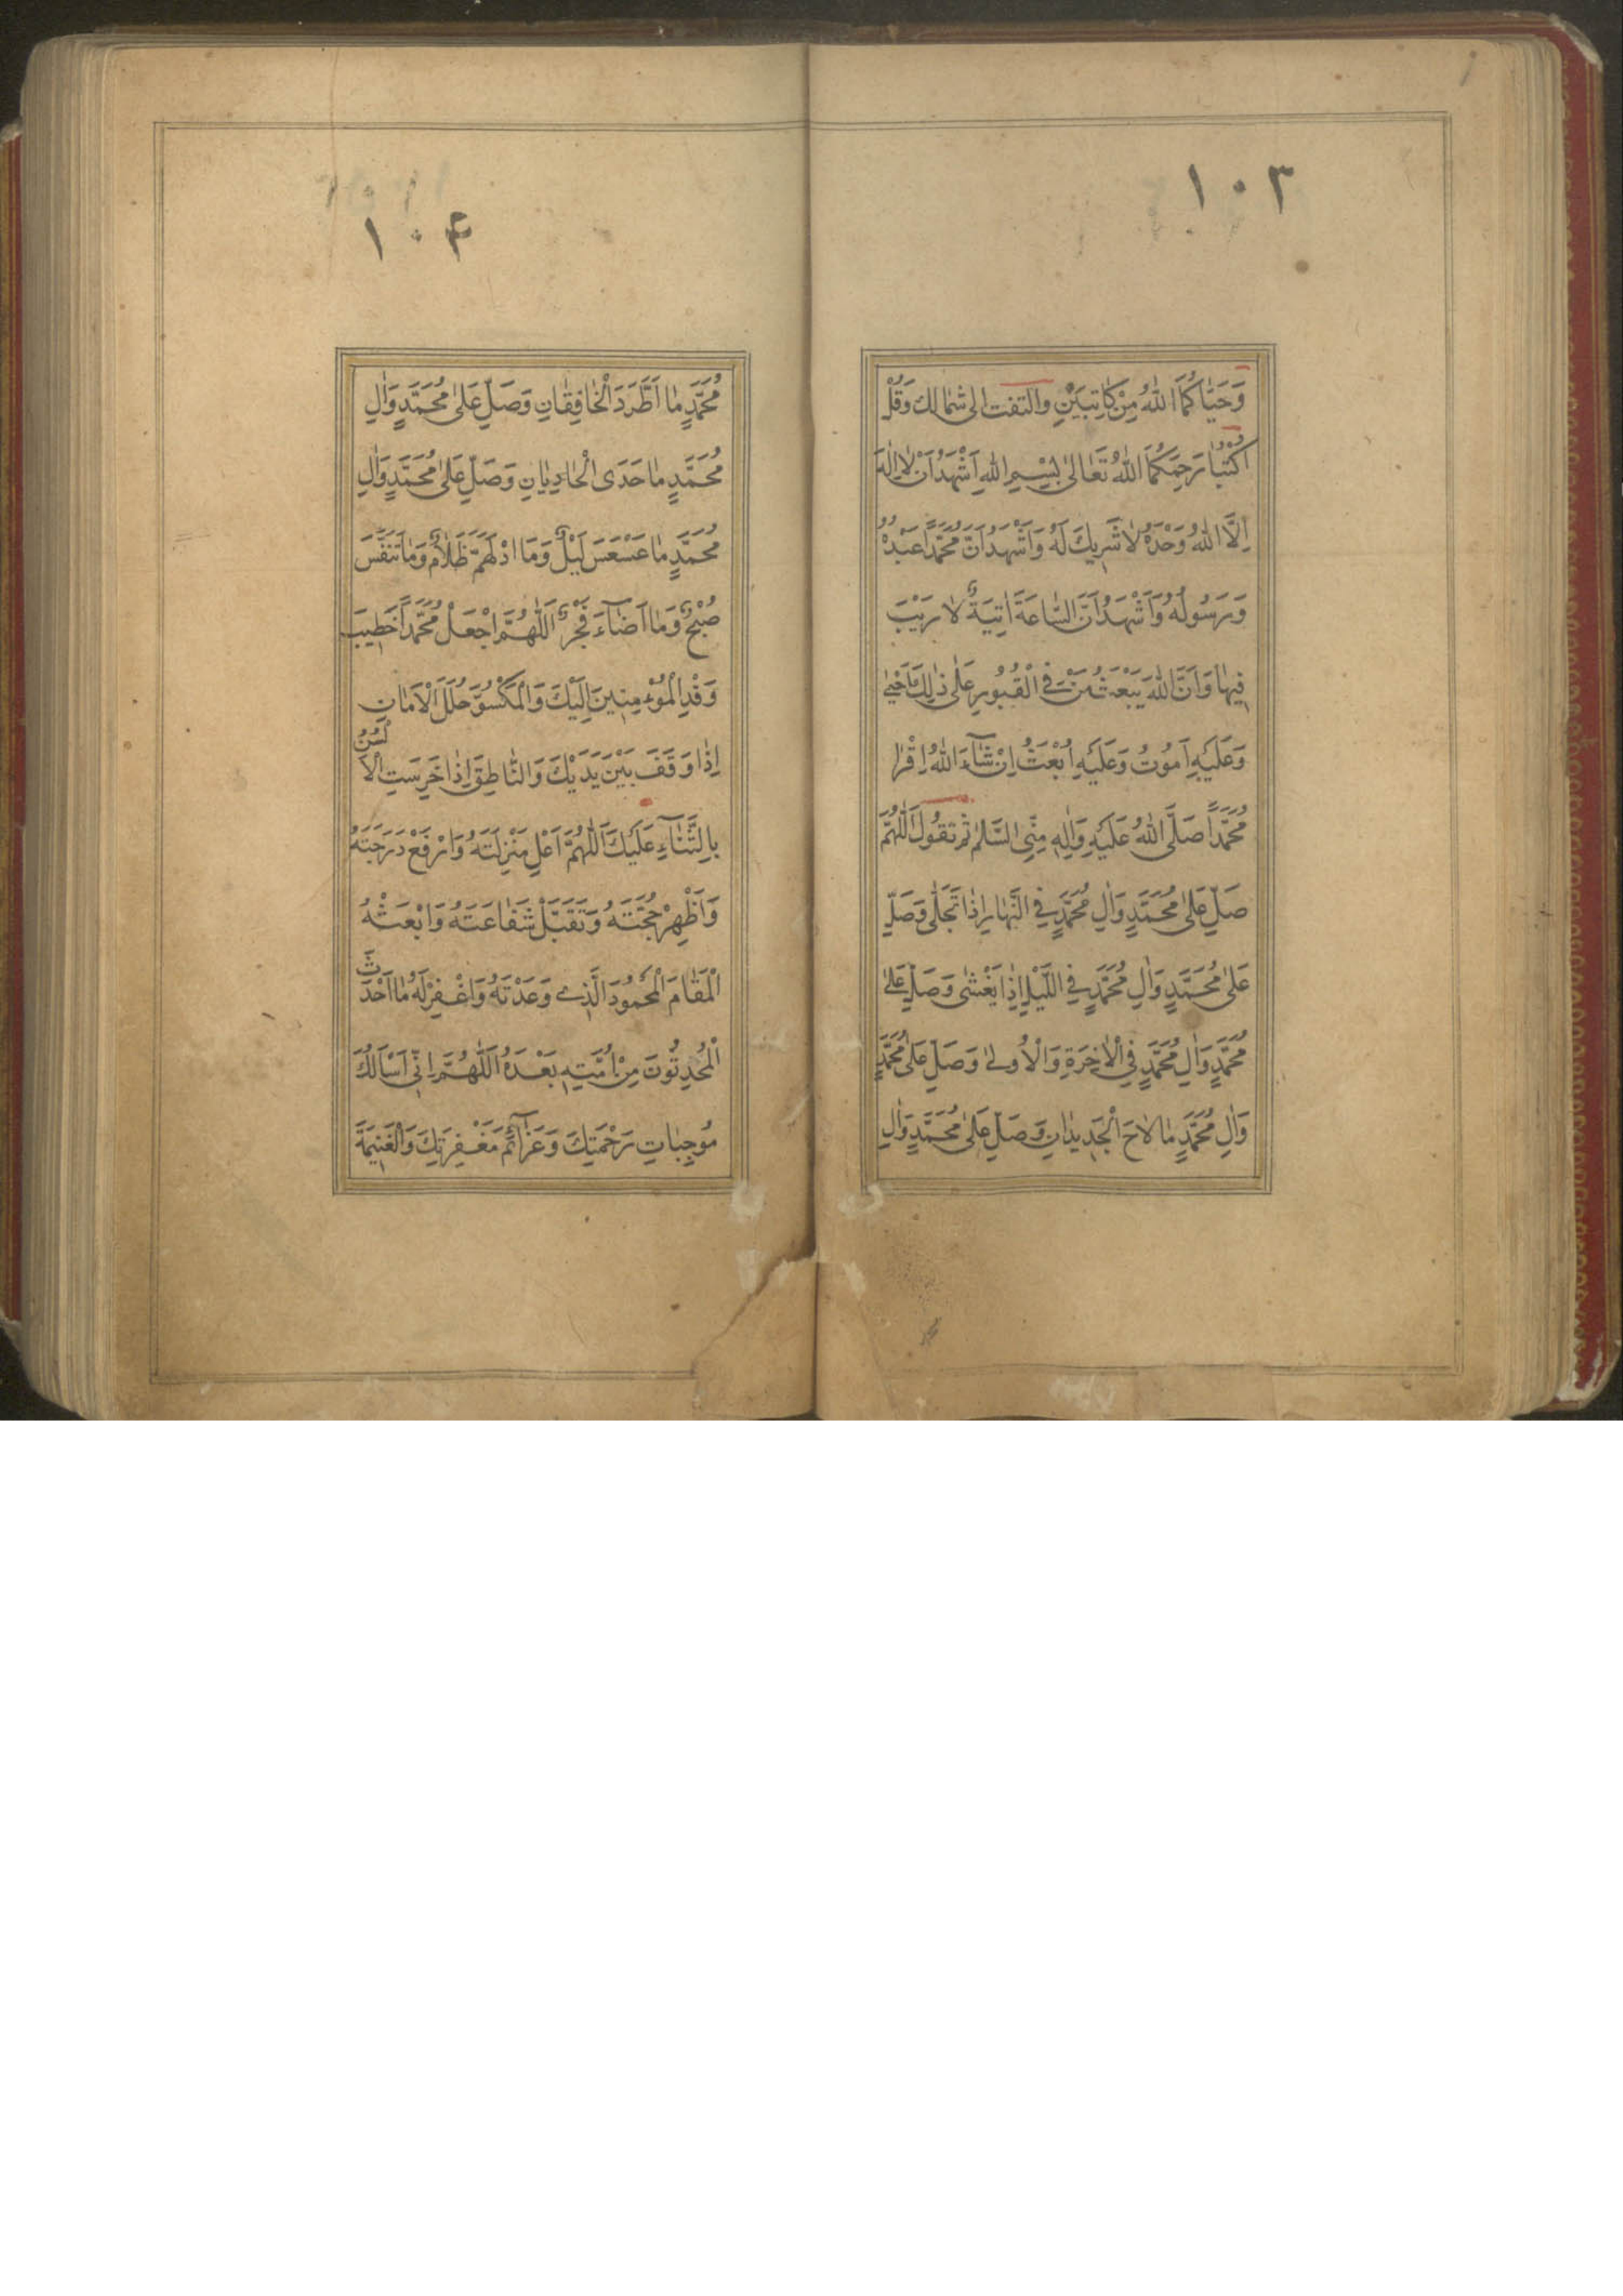 ١٠٣
وَحَيّٰاكُمَا اللّٰهُ مِنْ كٰاتِبَيْنِ والتفت الى شمالك وَقُلْ
اُكْتُبٰا رَحِمَكُمَا اللّٰهُ تَعٰالىٰ بِسْمِ اللّٰهِ اَشْهَدُ اَنْ لٰا اِلٰهَ
اِلَّا اللّٰهُ وَحْدَهُ لٰا شَرِيكَ لَهُ وَاَشْهَدُ اَنَّ مُحَمَّداً عَبْدُهُ
وَرَسُولُهُ وَاَشْهَدُ اَنَّ السّٰاعَةَ اٰتِيَةٌ لٰا رَيْبَ
فِيهٰا وَاَنَّ اللّٰهَ يَبْعَثُ مَنْ فِي الْقُبُورِ عَلىٰ ذٰلِكَ اَحْيىٰ
وَعَلَيْهِ اَمُوتُ وَعَلَيْهِ اُبْعَثُ اِنْ شٰآءَ اللّٰهُ اِقْرٰا
مُحَمَّداً صَلَّى اللّٰهُ عَلَيْهِ وَاٰلِهِ مِنِّى السَّلٰم ثم تقول اَللّٰهُمَّ
صَلِّ عَلىٰ مُحَمَّدٍ وَاٰلِ مُحَمَّدٍ فِي النَّهٰارِ اِذٰا تَجَلّٰى وَصَلِّ
عَلىٰ مُحَمَّدٍ وَاٰلِ مُحَمَّدٍ فِي اللَّيْلِ اِذٰا يَغْشىٰ وَصَلِّ عَلىٰ
مُحَمَّدٍ وَاٰلِ مُحَمَّدٍ فِي الْاٰخِرَةِ وَالْاُولىٰ وَصَلِّ عَلىٰ مُحَمَّدٍ
وَاٰلِ مُحَمَّدٍ مٰا لٰاحَ الْجَدِيدٰانِ وَصَلِّ عَلىٰ مُحَمَّدٍ وَاٰلِ
١٠۴
مُحَمَّدٍ مٰا اَطَّرَدَ الْخٰافِقٰانِ وَصَلِّ عَلىٰ مُحَمَّدٍ وَاٰلِ
مُحَمَّدٍ مٰا حَدَى الْحٰادِيٰانِ وَصَلِّ عَلىٰ مُحَمَّدٍ وَاٰلِ
مُحَمَّدٍ مٰا عَسْعَسَ لَيْلٌ وَمَا ادْلَهَمَّ ظَلٰامٌ وَمٰا تَنَفَّسَ
صُبْحٌ وَمٰا اَضٰآءَ فَجْرٌ اَللّٰهُمَّ اجْعَلْ مُحَمَّداً خَطِيبَ
وَفْدِ الْمُؤْمِنِينَ اِلَيْكَ وَالْمَكْسُوَّ حُلَلَ الْاَمٰانِ
اِذٰا وَقَفَ بَيْنَ يَدَيْكَ وَالنّٰاطِقَ اِذٰا خَرِسَتِ الْاَلْسُنُ
بِالثَّنٰآءِ عَلَيْكَ اَللّٰهُمَّ اَعْلِ مَنْزِلَتَهُ وَارْفَعْ دَرَجَتَهُ
وَاَظْهِرْ حُجَّتَهُ وَتَقَبَّلْ شَفٰاعَتَهُ وَابْعَثْهُ
الْمَقٰامَ الْمَحْمُودَ الَّذِي وَعَدْتَهُ وَاغْفِرْ لَهُ مٰا اَحْدَثَ
الْمُحْدِثُونَ مِنْ اُمَّتِهِ بَعْدَهُ اَللّٰهُمَّ اِنِّى اَسْاَلُكَ
مُوجِبٰاتِ رَحْمَتِكَ وَعَزٰآئِمَ مَغْفِرَتِكَ وَالْغَنِيمَةَ